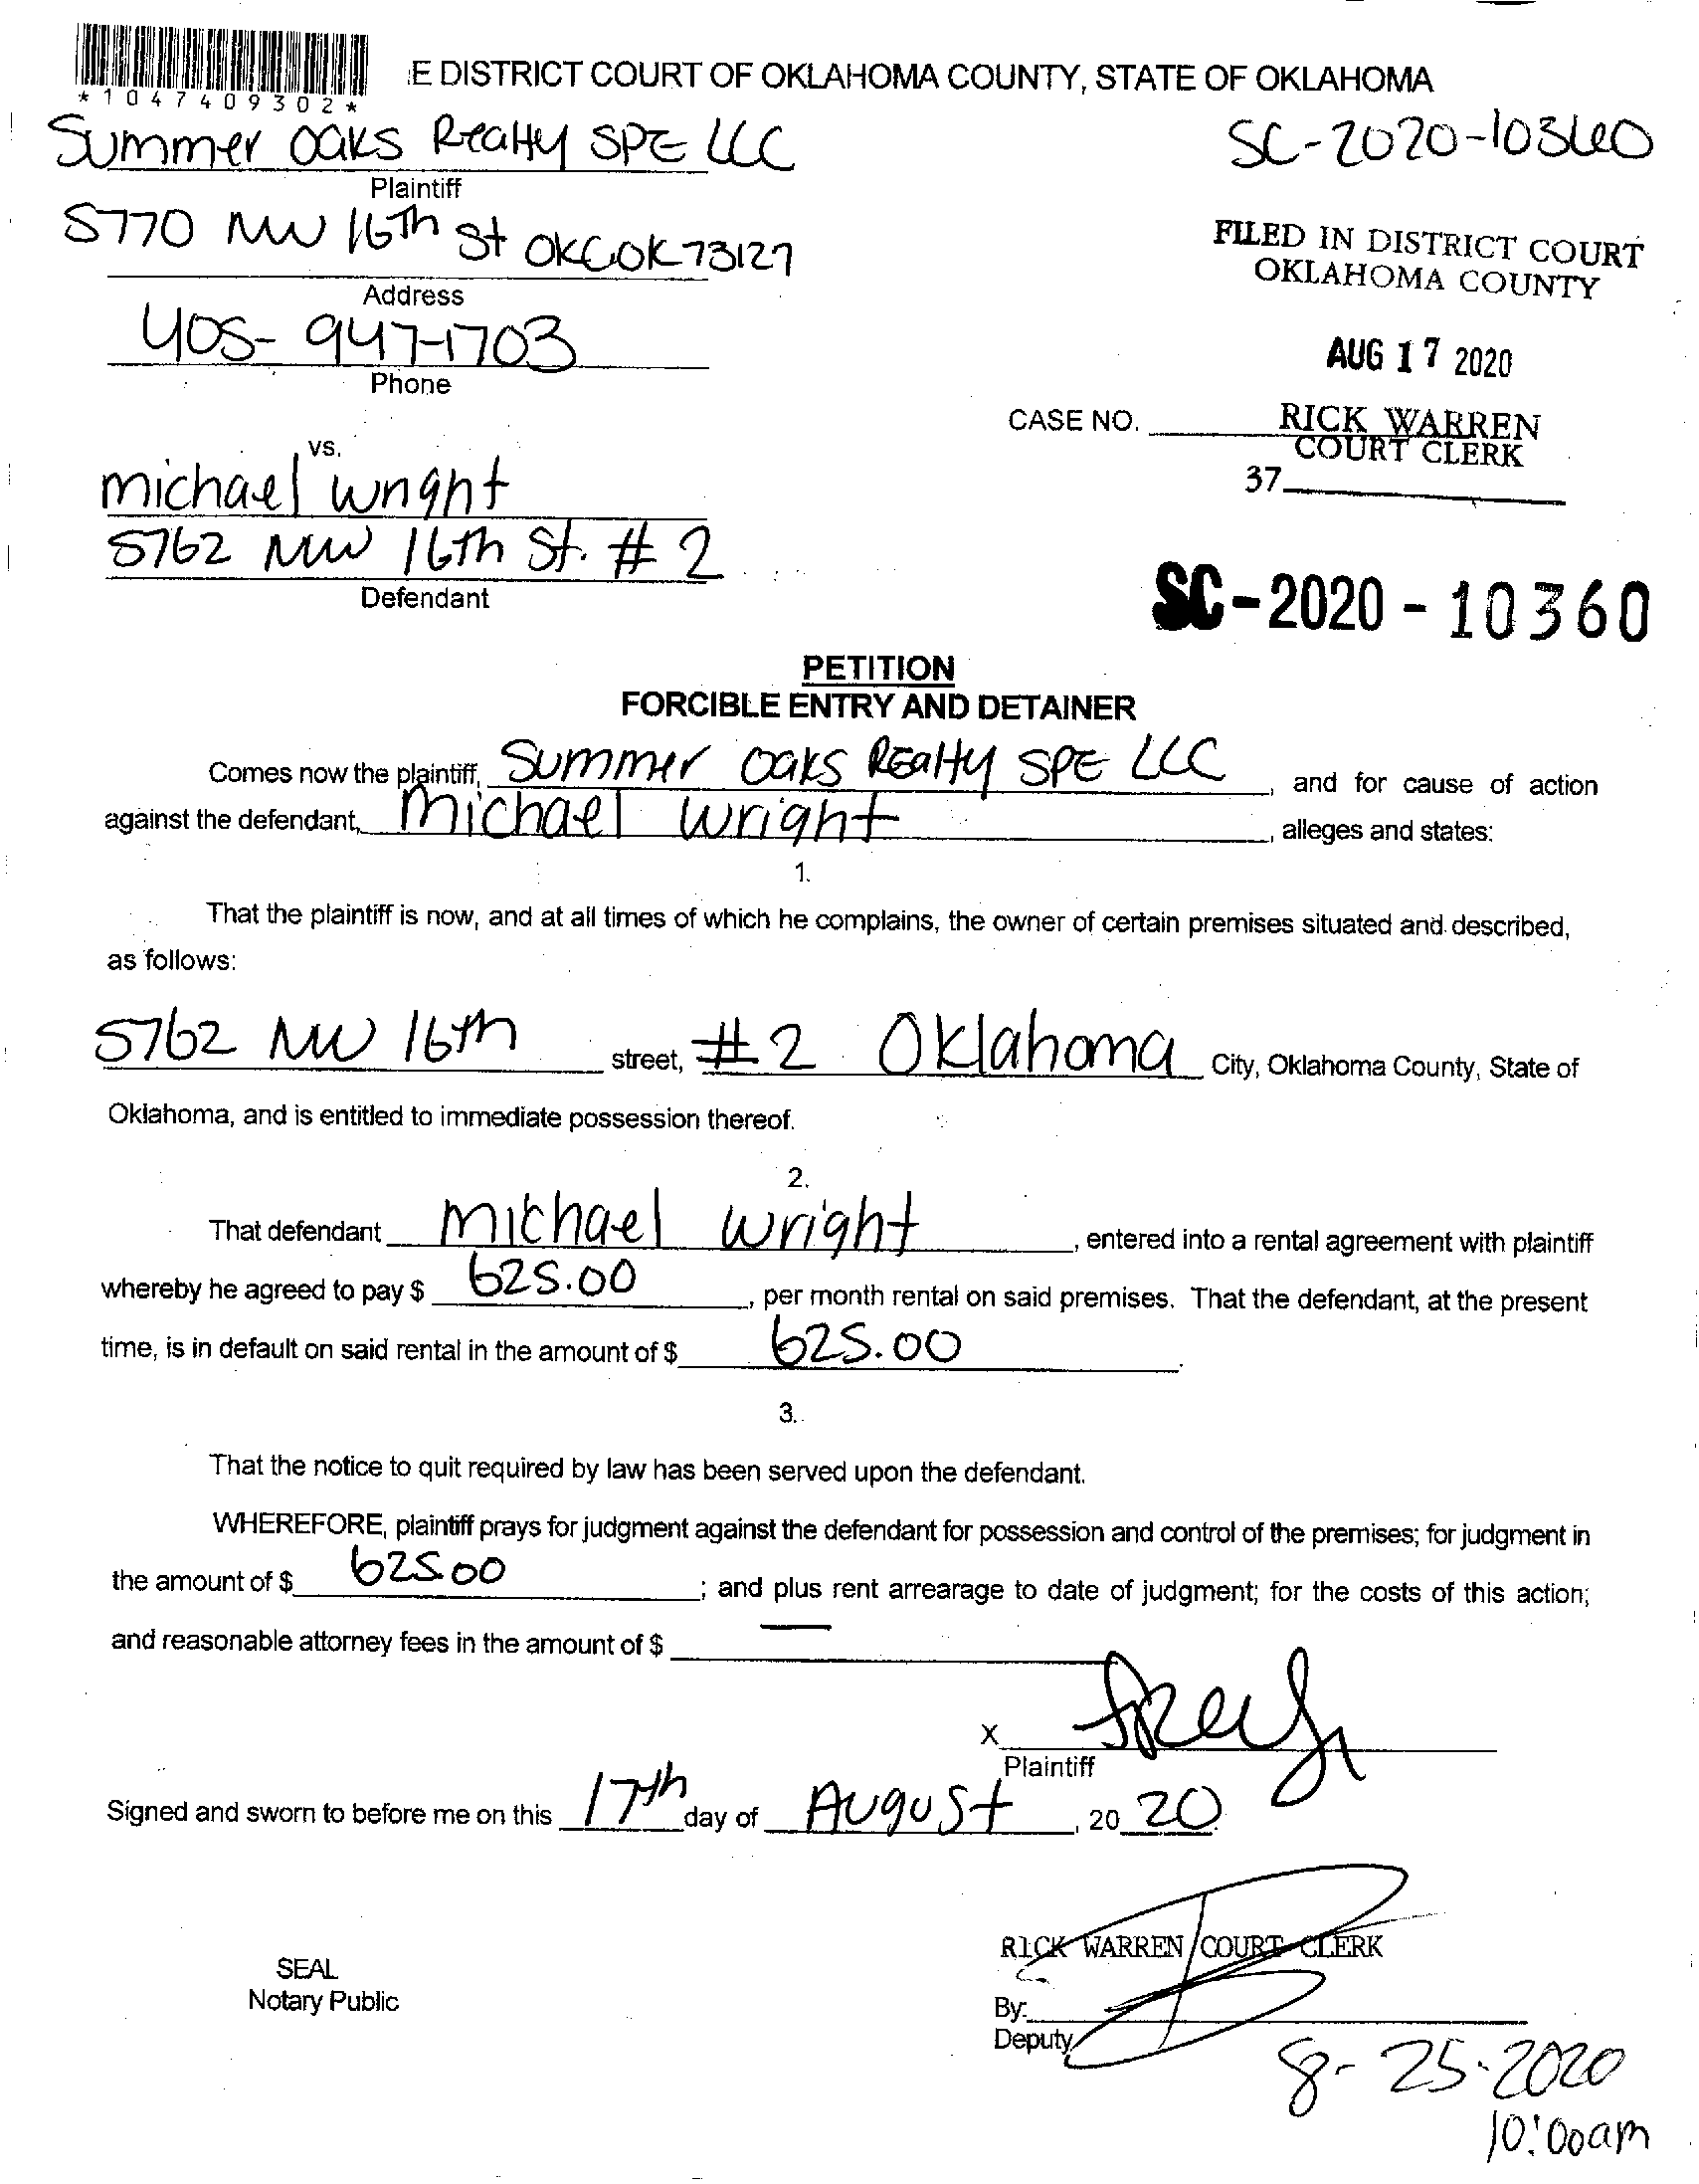 *1047409302*
E DISTRICT COURT OF OKLAHOMA COUNTY, STATE OF OKLAHOMA
Summer Oaks Realty SPE LLC
SC-2020-10360
Plaintiff
5770 NW 16Th St OKC OK 73127
FILED IN DISTRICT COURT
OKLAHOMA COUNTY
Address
405-947-1703
AUG 17 2020
Phone
CASE NO.
RICK WARREN
COURT CLERK
vs.
37
michael wright
5762 NW 16th St. # 2
Defendant
SC-2020-10360
PETITION
FORCIBLE ENTRY AND DETAINER
Comes now the plaintiff, Summer Oaks Realty SPE LLC, and for cause of action
against the defendant, Michael Wright, alleges and states:
1.
That the plaintiff is now, and at all times of which he complains, the owner of certain premises situated and described,
as follows:
5762 NW 16th street, #2 Oklahoma City, Oklahoma County, State of
Oklahoma, and is entitled to immediate possession thereof.
2.
That defendant Michael Wright, entered into a rental agreement with plaintiff
whereby he agreed to pay $ 625.00, per month rental on said premises. That the defendant, at the present
time, is in default on said rental in the amount of $ 625.00.
3.
That the notice to quit required by law has been served upon the defendant.
WHEREFORE, plaintiff prays for judgment against the defendant for possession and control of the premises; for judgment in
the amount of $ 625.00; and plus rent arrearage to date of judgment; for the costs of this action;
and reasonable attorney fees in the amount of $ —
X
Plaintiff
Signed and sworn to before me on this 17th day of August, 20 20.
RICK WARREN COURT CLERK
SEAL
Notary Public
By:
Deputy
8-25-2020
10:00am